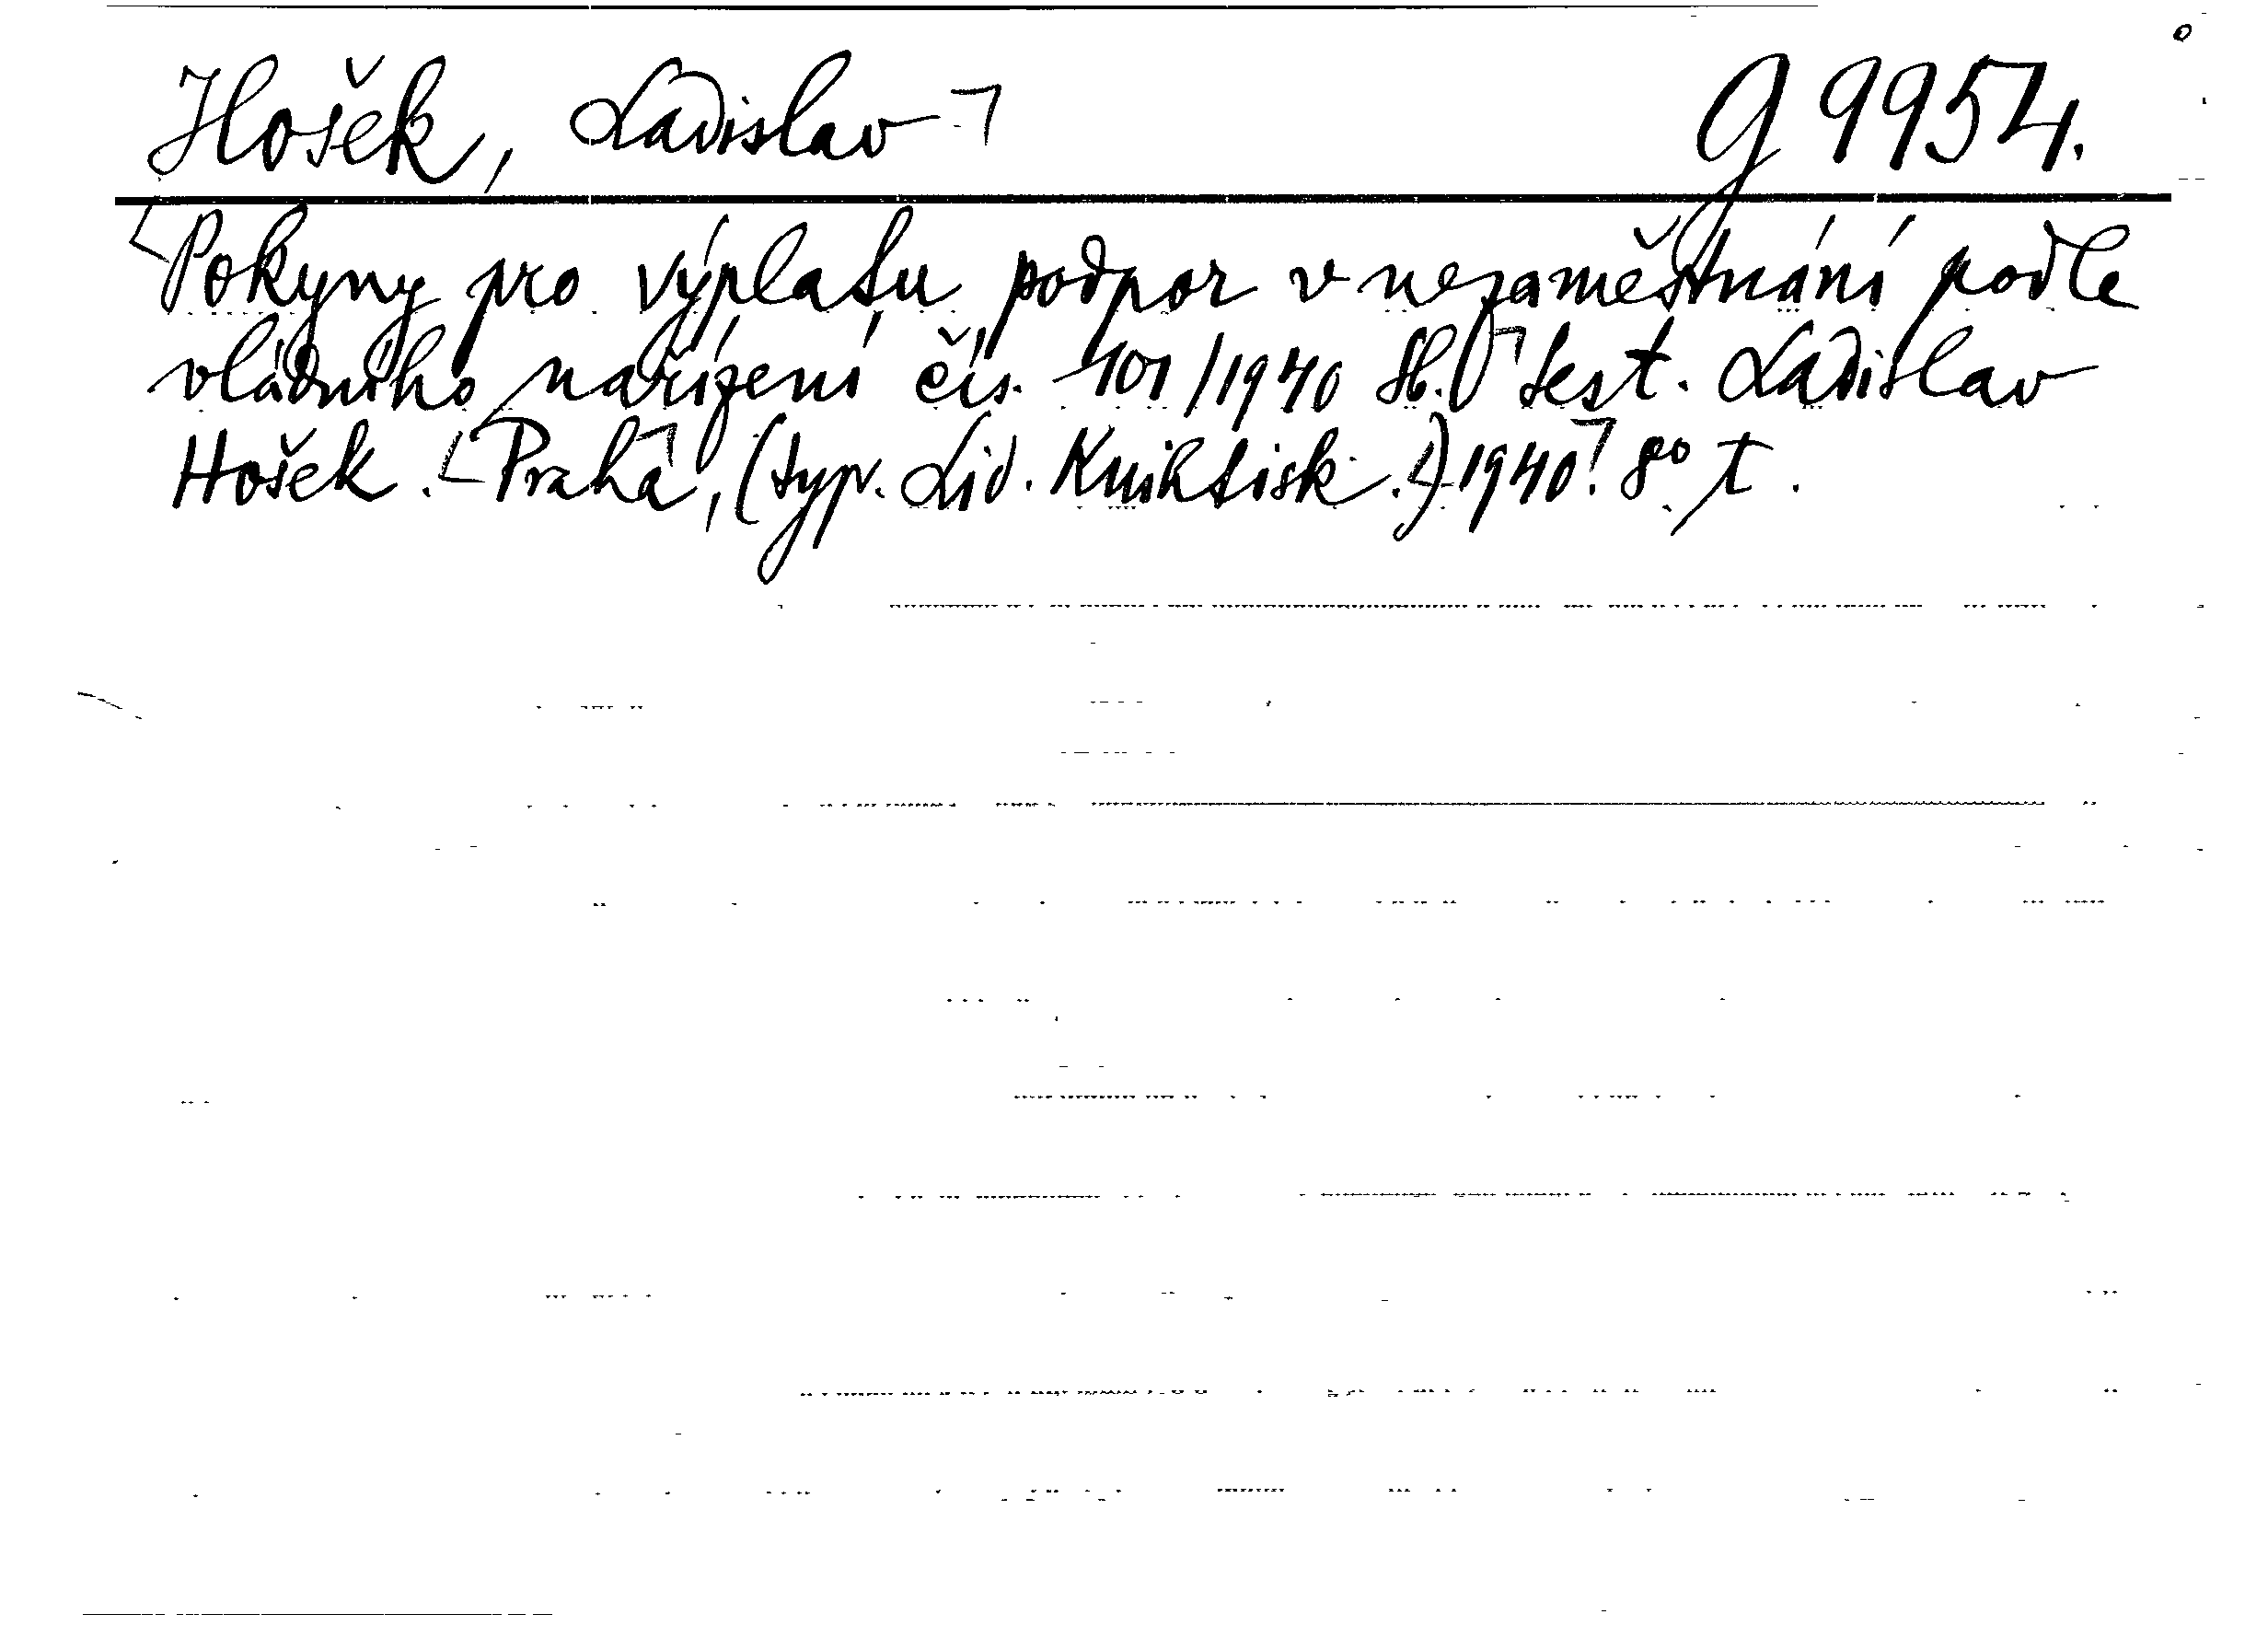 Hošek, Ladislav ¬ g 9954.
Pokyny pro výplatu podpor v nezaměstnání podle
vládního nařízení čís. 101/1940 Sb. ¬ sest. Ladislav
Hošek. Praha, (typ. Lid. Knihtisk.) 1940. 8° t.